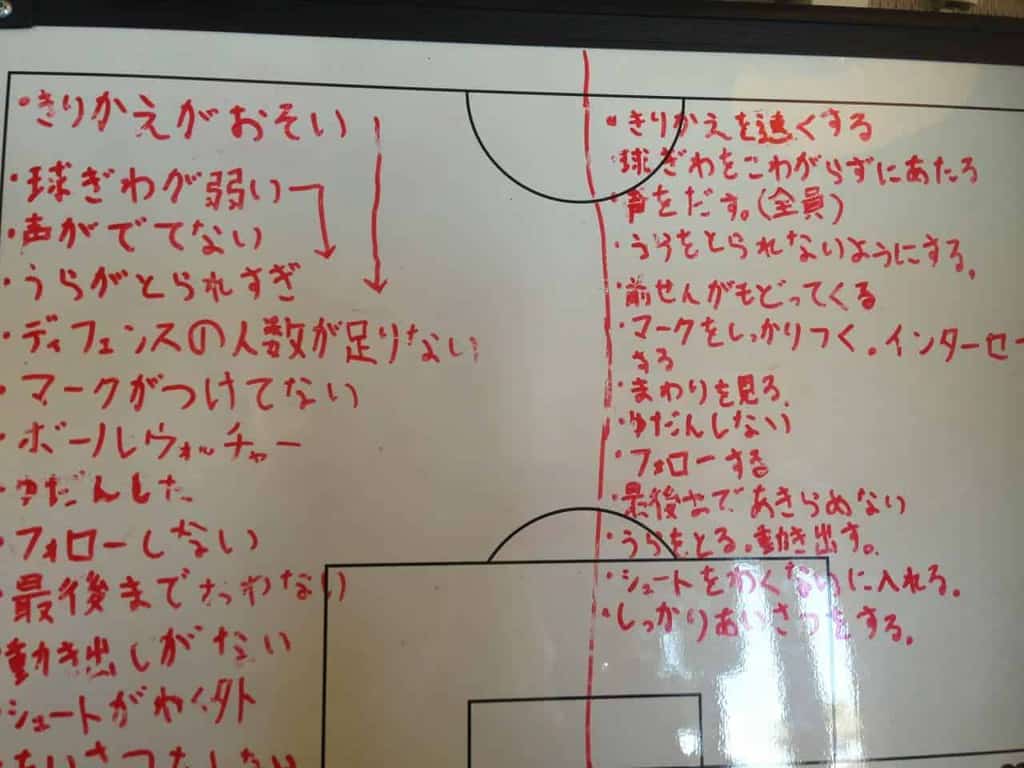 ・きりかえがおそい
・球ぎわが弱い
・声がでてない
・うらがとられすぎ
・ディフェンスの人数が足りない
・マークがつけてない
・ボールウォッチャー
・ゆだんした
・フォローしない
・最後まで
・動き出しがない
・シュートがわく外
・きりかえを速くする
・球ぎわをこわがらずにあたろ
・声をだす。(全員)
・うらをとられないようにする。
・前せんがもどってくる
・マークをしっかりつく。インターセー
する
・まわりを見ろ、
・ゆだんしない
・フォローする
・最後まであきらめない
・うらをとる。動き出す。
・シュートをわくないに入れろ。
・しっかりあいさつをする。